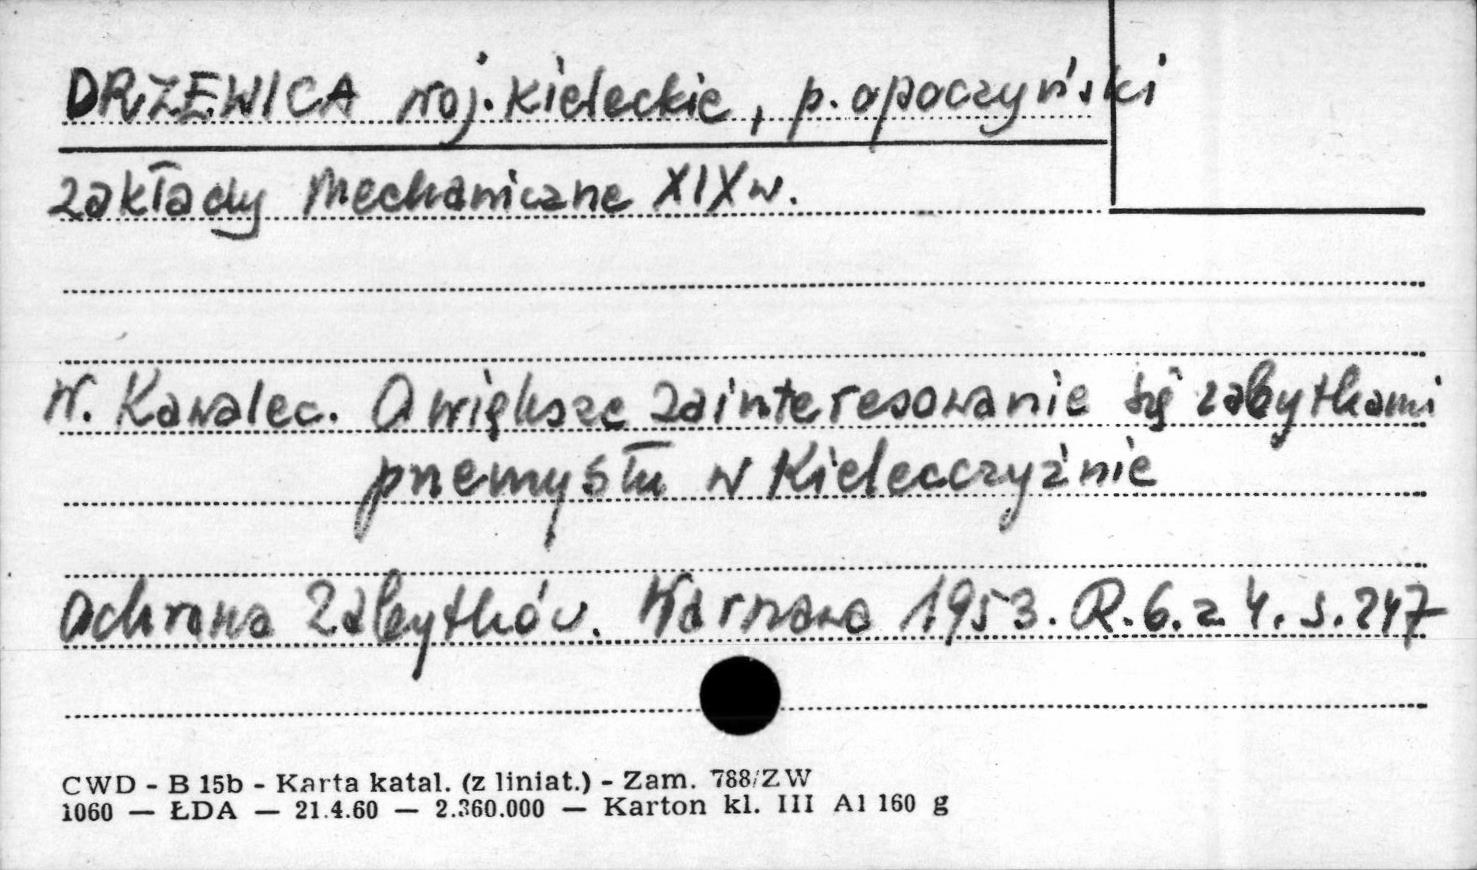 DRZEWICA woj. Kieleckie, p. opoczyński
Zakłady Mechaniczne XIX w.
W. Kawalec. O większe zainteresowanie się zabytkami
przemysłu w Kielecczyźnie
Ochrona Zabytków. Warszawa 1953. R. 6. z. 4. s. 247
CWD - B 15b - Karta katal. (z liniat.) - Zam. 788/ZW
1060 — ŁDA — 21.4.60 — 2.360.000 — Karton kl. III A1 160 g